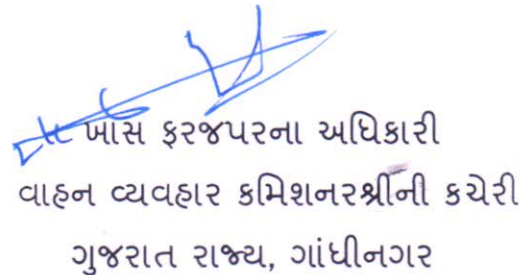 ખાસ ફરજપરના અધિકારી
વાહન વ્યવહાર કમિશનરશ્રીની કચેરી
ગુજરાત રાજ્ય, ગાંધીનગર